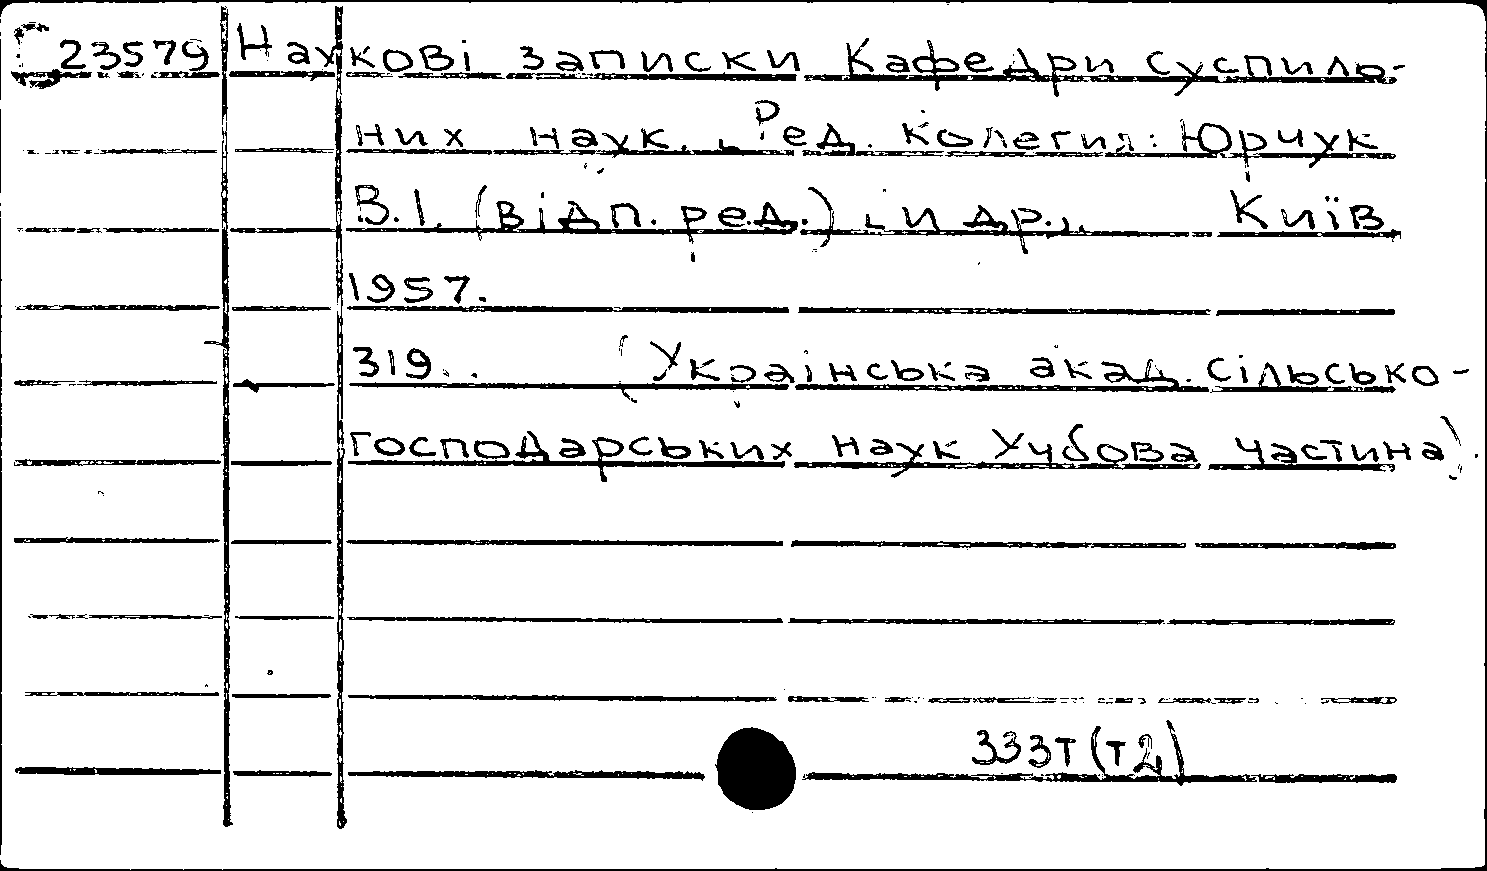 С23579 Наукові записки Кафедри суспиль-
них наук. Ред. колегия: Юрчук
В.І. (відп. ред.) и др., Київ,
1957.
319.. (Українська акад. сільсько-
господарських наук Учбова частина).
333т (т2)